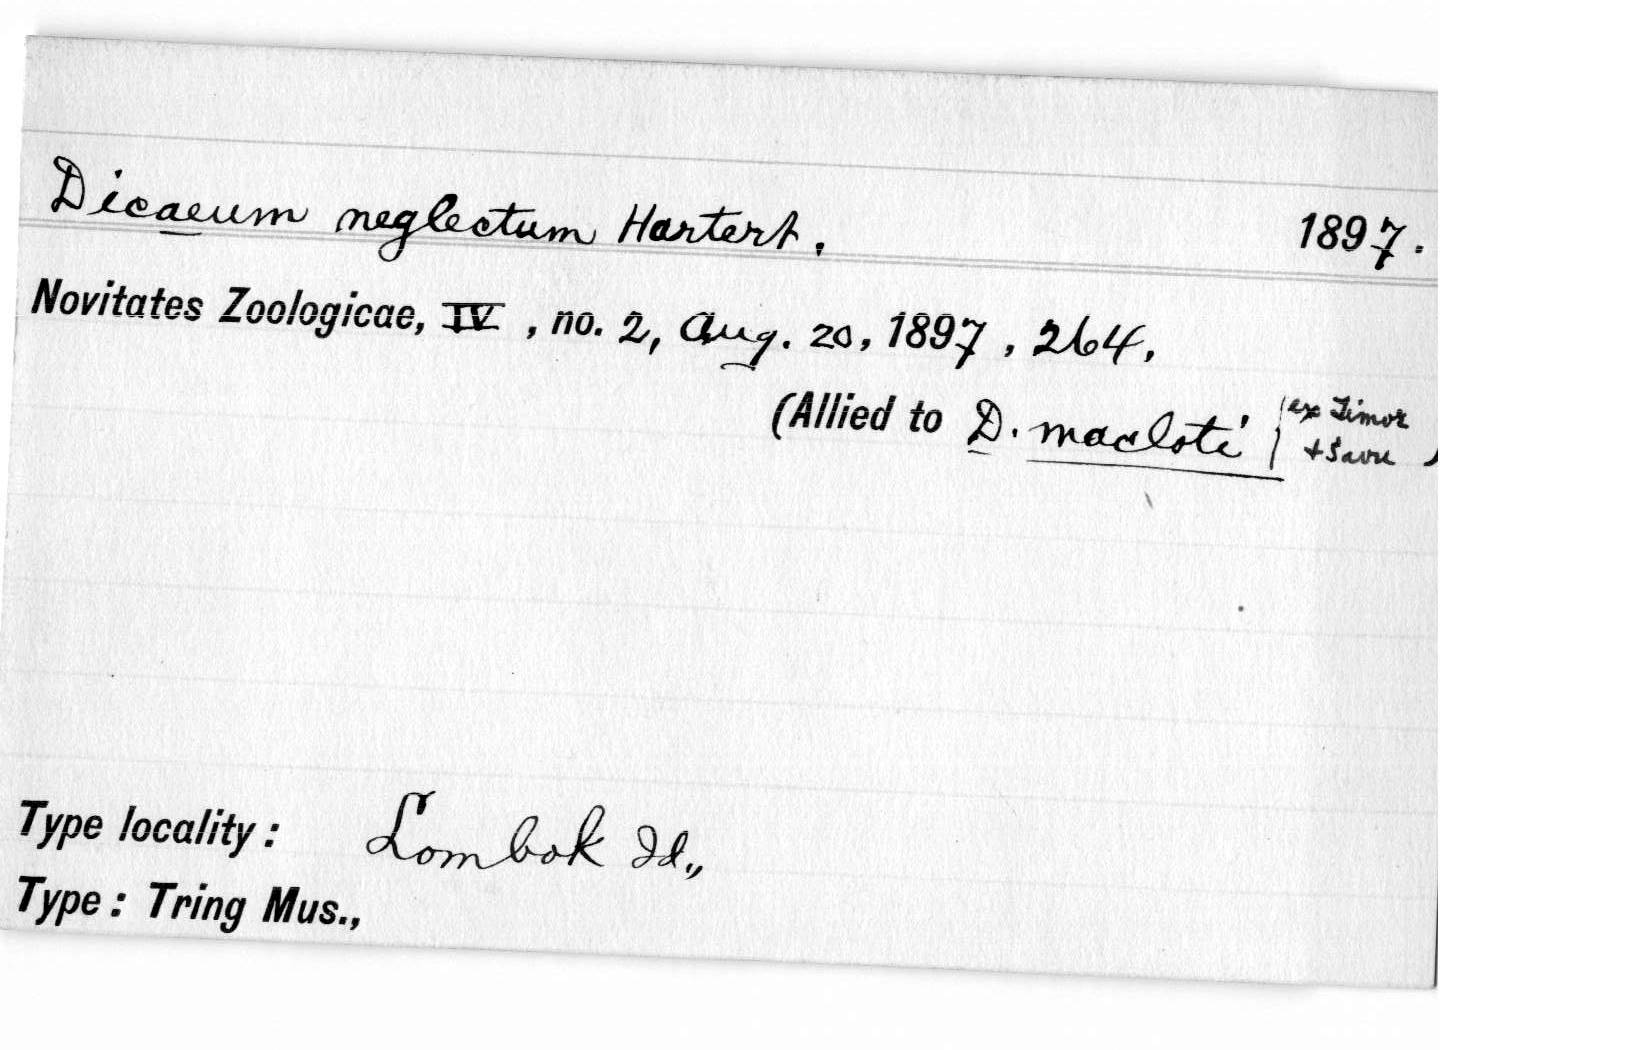 Dicaeum neglectum Hartert, 1897.
Novitates Zoologicae, IV, no. 2, Aug. 20, 1897, 264.
(Allied to D. macloti {ex Timor
+ Savu )
Type locality: Lombok Id.,
Type: Tring Mus.,